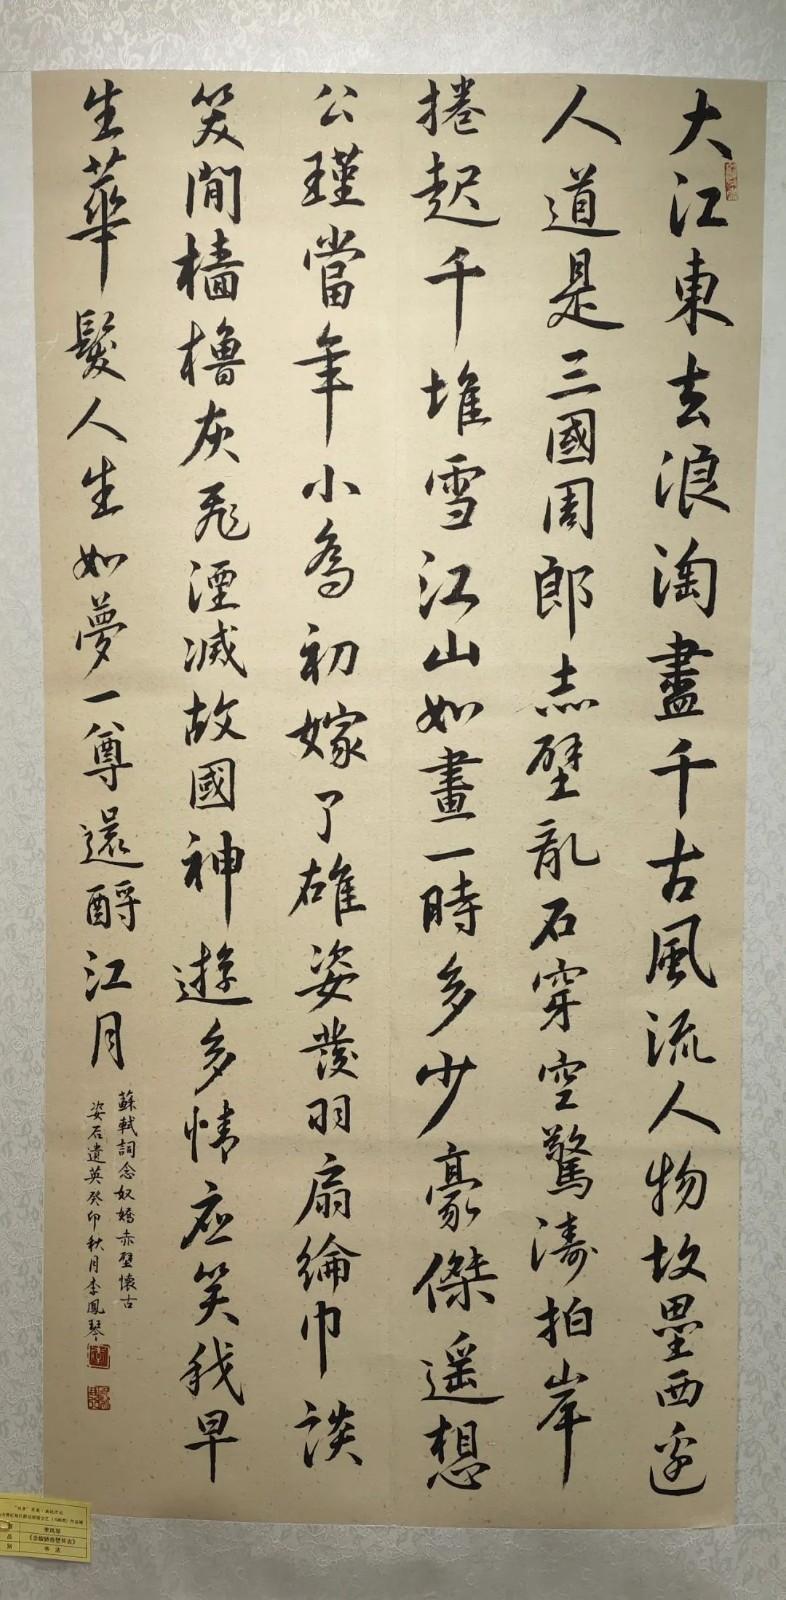 大江東去浪淘盡千古風流人物故壘西邊
人道是三國周郎赤壁亂石穿空驚濤拍岸
捲起千堆雪江山如畫一時多少豪傑遥想
公瑾當年小喬初嫁了雄姿發羽扇綸巾談
笑間檣櫓灰飛湮滅故國神遊多情应笑我早
生華髮人生如夢一尊還酹江月
蘇軾詞念奴嬌赤壁懷古
姿石遺英癸卯秋月李鳳琴
李凤琴
《念奴娇赤壁怀古》
书法